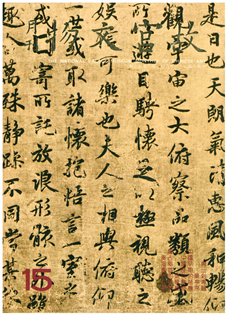 是日也天朗氣清惠風和暢仰
觀宇宙之大俯察品類之盛
所以遊目騁懷足以極視聽之
娛信可樂也夫人之相與俯仰
一世或取諸懷抱悟言一室之
寄所託放浪形骸之外雖
萬殊靜躁不同當其
THE NATIONAL PALACE MUSEUM
15